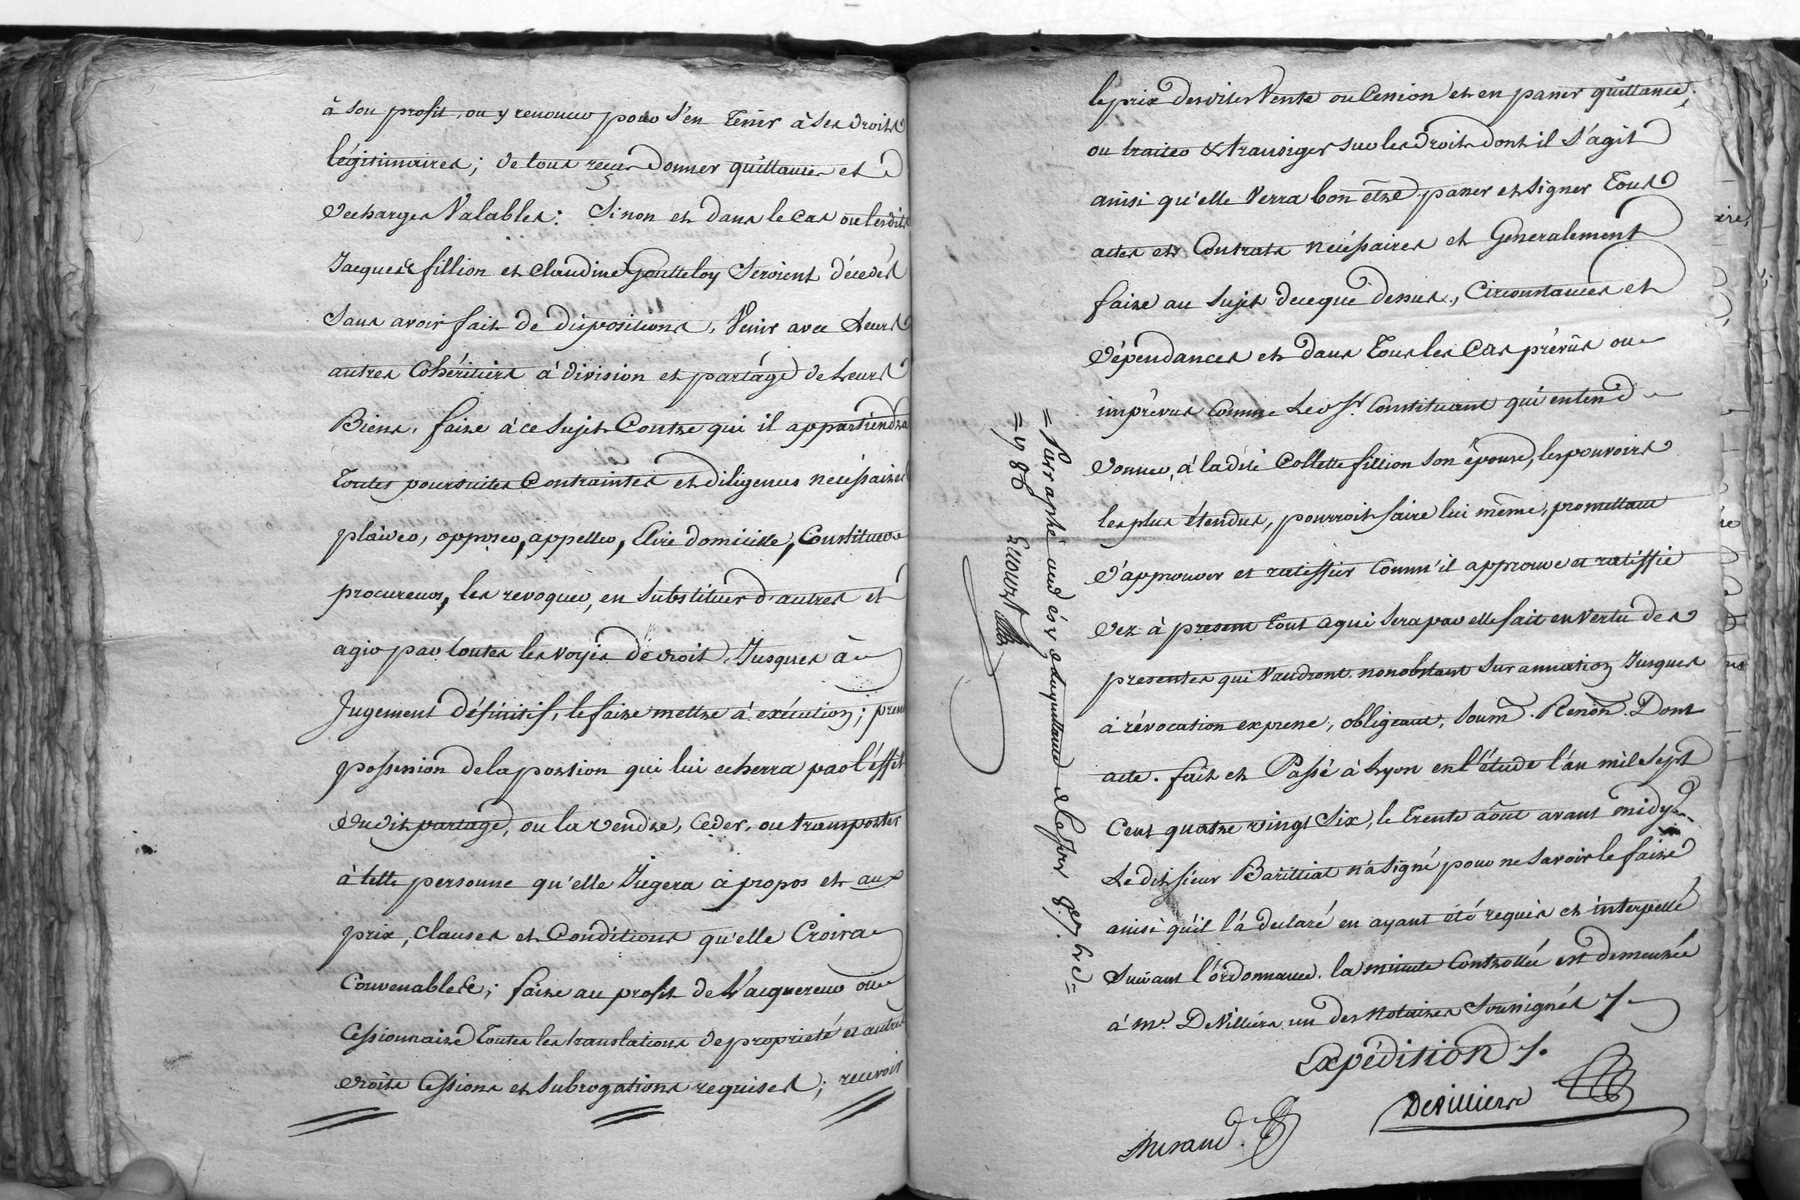 à son profit, ou y renoncer pour s'en tenir à ses droits
légitimaires; de tous recus donner quittances et
décharges Valables: Sinon et dans le cas ou lesdits
Jacques fillion et Claudine Goutteloy seroient décédés
Sans avoir fait de dispositions, Venir avec Leurs
autres Cohéritiers à division et partage de Leurs
Biens, faire à ce Sujet Contre qui il appartiendra
toutes poursuites Contraintes et diligences nécéssaires
plaider, opposer, appeller, Elire domicille, Constituer
procureurs, les revoquer, en Substituer d'autres et
agir par toutes les voyes de droit, Jusques à
Jugement définitif, le faire mettre à exécution; prendre
possession de la portion qui lui echerra par l'éffet
dudit partage, ou la vendre, Ceder, ou transporter
à telle personne qu'elle Jugera à propos et aux
prix, Clauses et Conditions qu'elle Croira
Convenables; faire au profit de L'acquereur ou
Cessionnaire Toutes les translations de propriété et autres
droits Cessions et Subrogations requises; recevoir
le prix desdites Vente ou Cession et en passer quittance,
ou traiter & transiger sur les droits dont il s'agit
ainsi qu'elle Verra bon être passer et signer Tous
actes et Contrats nécéssaires et Generalement
faire au Sujet de ce que dessus, Circonstances et
dépendances et dans Tous les Cas prévûs ou
imprévus Comme Led Sr. Constituant qui entend
donner à la dite Collette fillion son épouse, les pouvoirs
les plus étendus, pourroit faire lui même, promettant
d'approuver et ratiffier Comm'il approuve et ratiffie
dez à présent tout a qui sera par elle fait en vertu des
presentes qui Vaudront nonobstant Surannation Jusques
à révocation expresse, obligeant, Soum. Renon. Dont
acte. fait et Passé à Lyon en l'étude l'an mil Sept
Cent quatre vingt Six, le trente août avant midy
Ledit Sieur Barilliat n'a signé pour ne Savoir le faire
ainsi qu'il l'a déclaré en ayant été requis et interpellé
Suivant l'ordonnance. la minute Controllée est demeurée
à Me. DeVilliers un des Notaires Soussignés /.
Expédition /.
Devilliers
Duraud
= Parraphé au dés de la quittance de ce jour